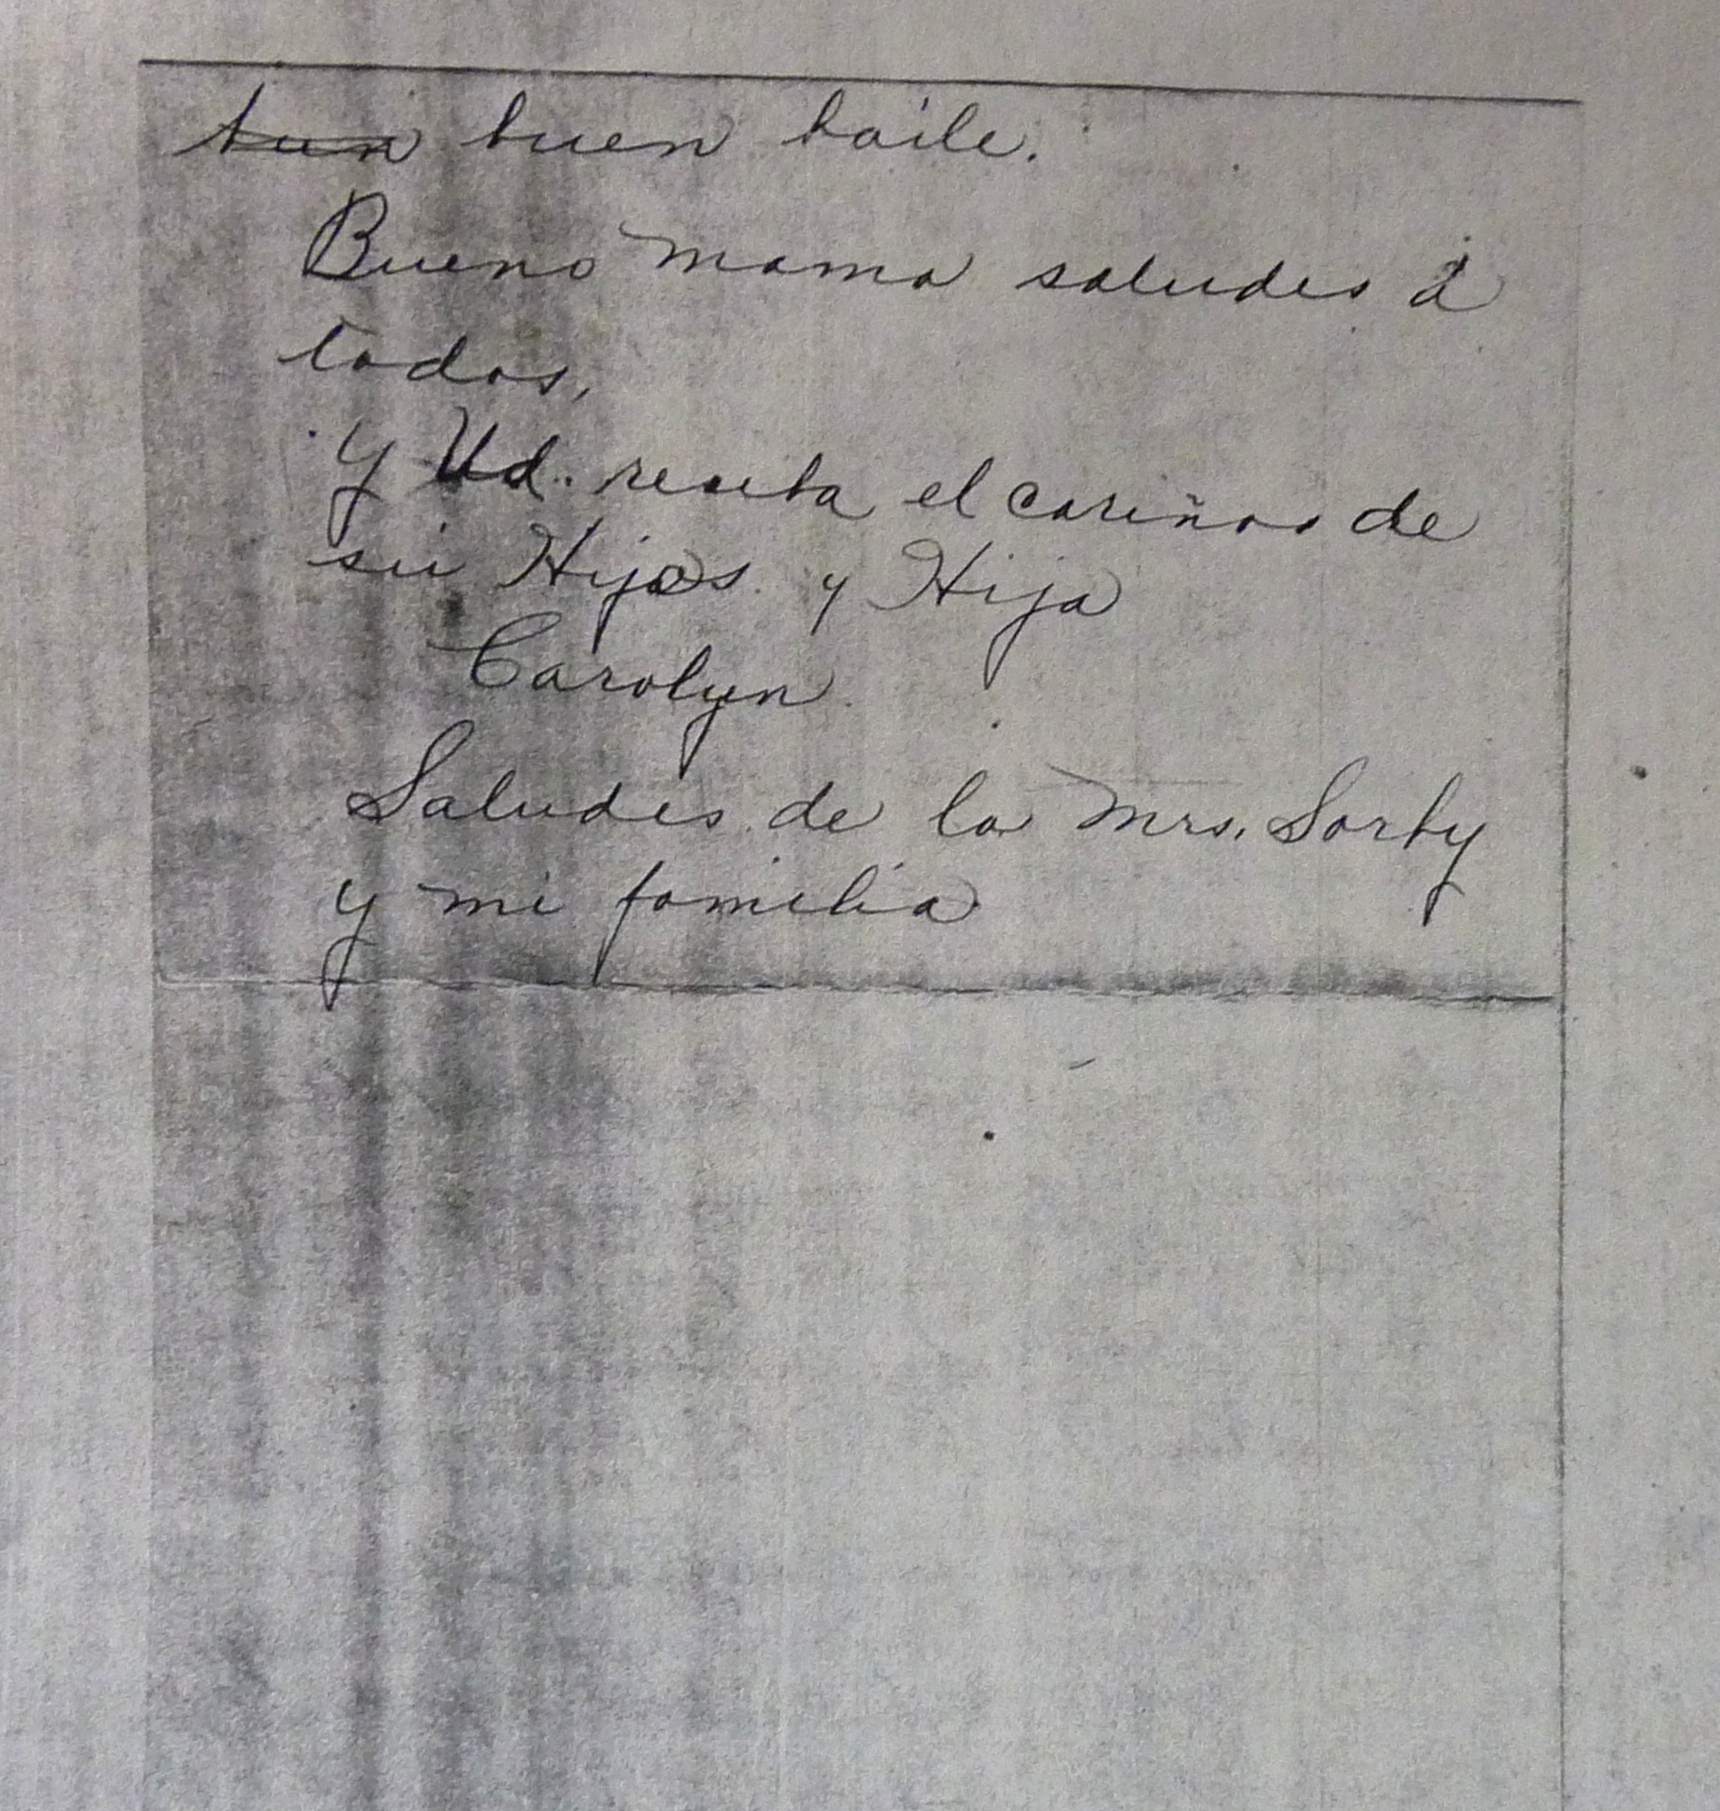 buen baile.
Bueno mama saludes á
todos,
y Ud. reciba el cariños de
su Hijos y Hija
Carolyn
Saludes de la Mrs. Sorby
y mi familia